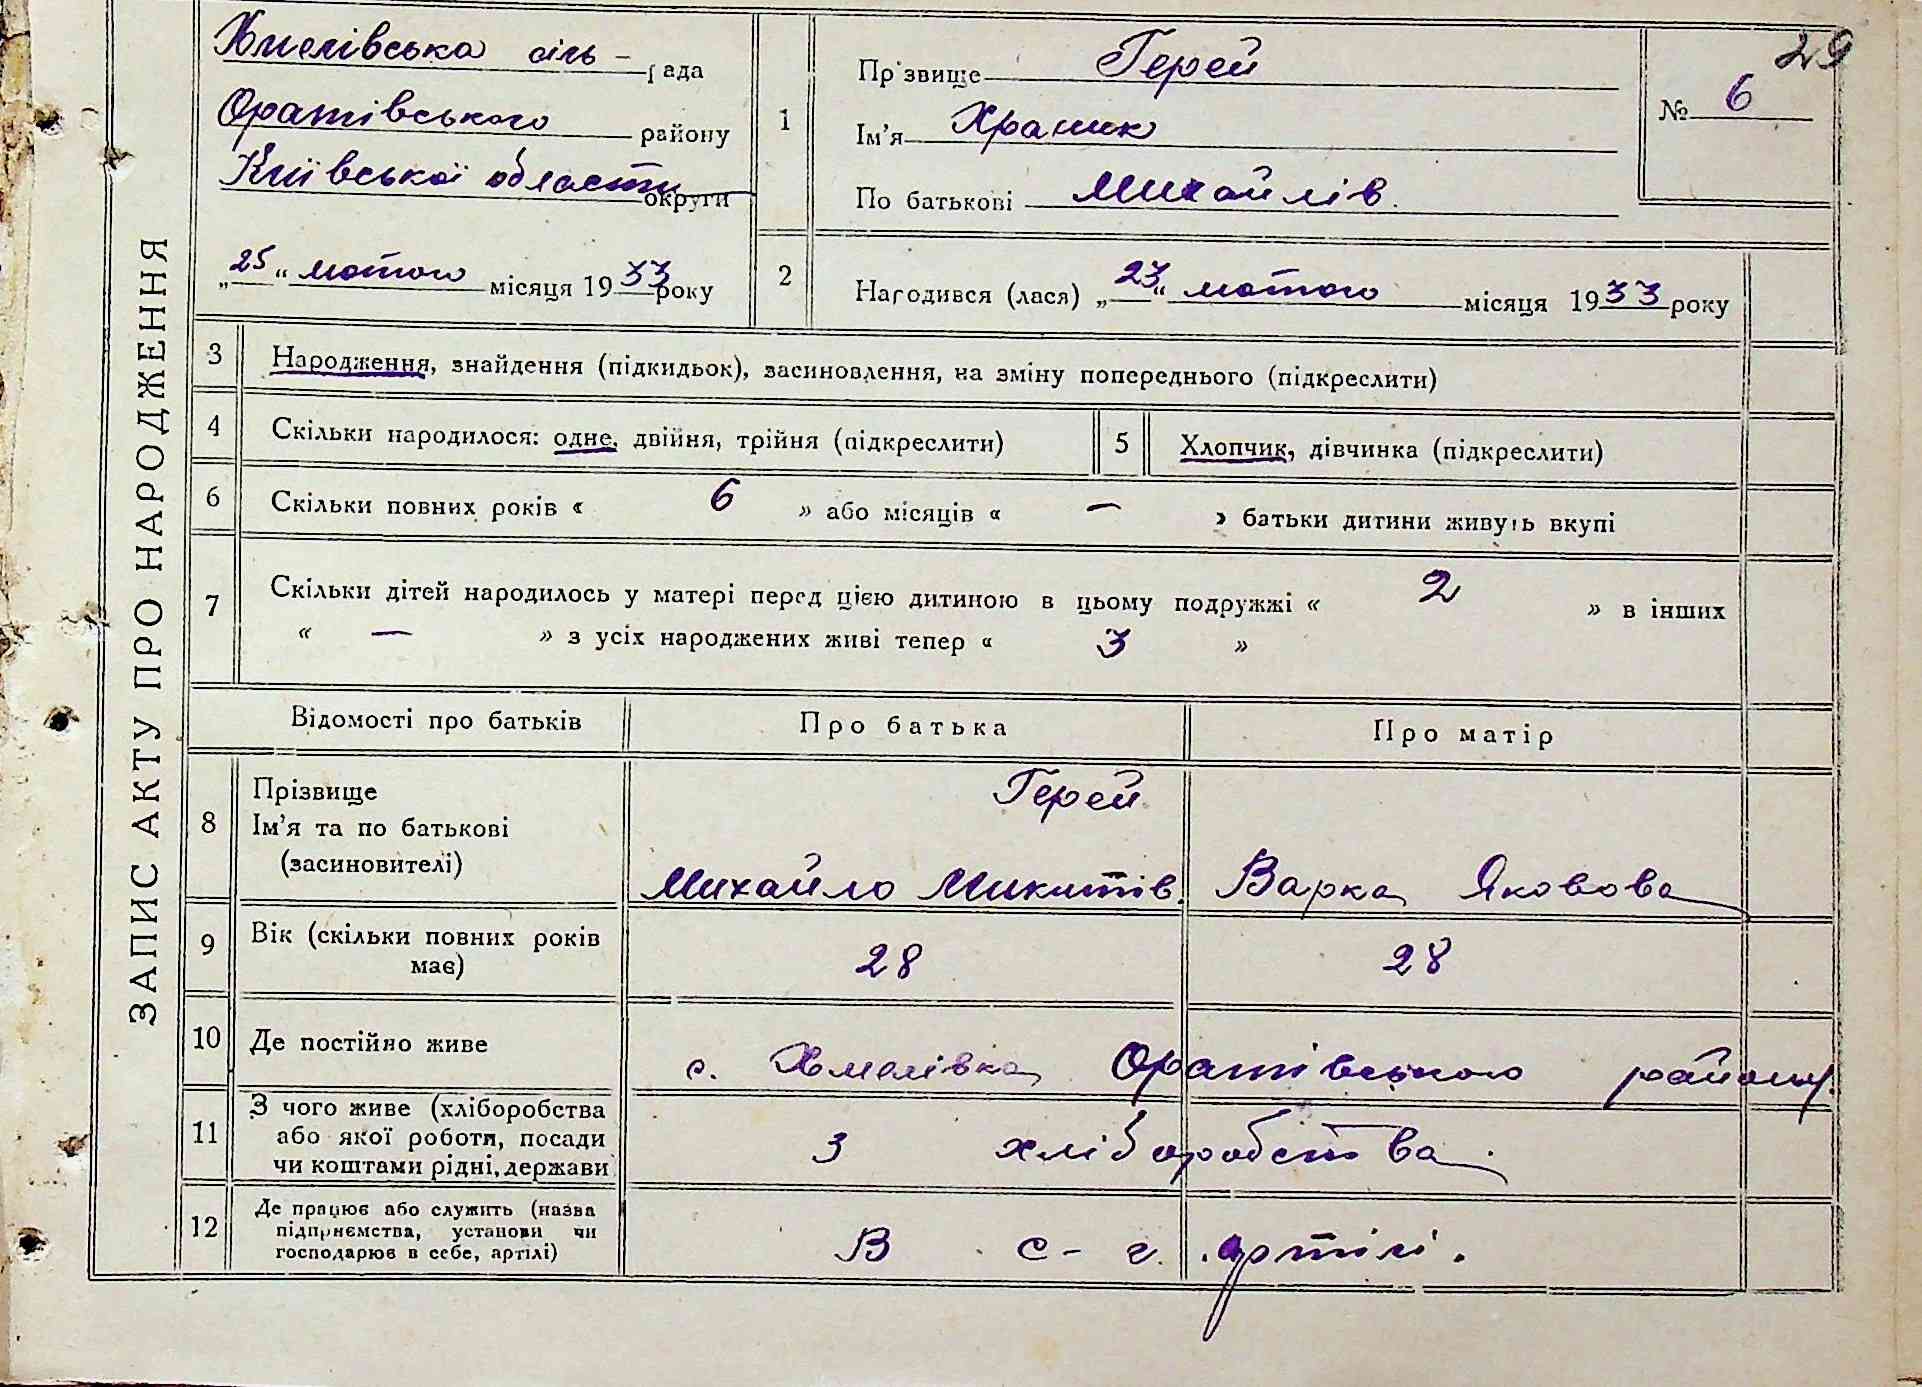 29
ЗАПИС АКТУ ПРО НАРОДЖЕННЯ
Хмелівська сіль- рада
Оратівського району
Київської області округи
„25“ лютого місяця 1933 року
1
Прізвище Герей
Ім'я Храник
По батькові Михайлів.
№ 6
2
Народився (лася) „23“ лютого місяця 1933 року
3 Народження, знайдення (підкидьок), засиновлення, на зміну попереднього (підкреслити)
4 Скільки народилося: одне, двійня, трійня (підкреслити)
5 Хлопчик, дівчинка (підкреслити)
6 Скільки повних років « 6 » або місяців « — » батьки дитини живуть вкупі
7 Скільки дітей народилось у матері перед цією дитиною в цьому подружжі « 2 » в інших
« — » з усіх народжених живі тепер « 3 »
Відомості про батьків Про батька Про матір
8 Прізвище
Ім'я та по батькові
(засиновителі)
Герей
Михайло Микитів. Варка Яковова
9 Вік (скільки повних років
має)
28 28
10 Де постійно живе с. Хмелівка Оратівського району.
11 З чого живе (хліборобства
або якої роботи, посади
чи коштами рідні, держави
З хліборобства.
12 Де працює або служить (назва
підприємства, установи чи
господарює в себе, артілі)
В с-г. артілі.